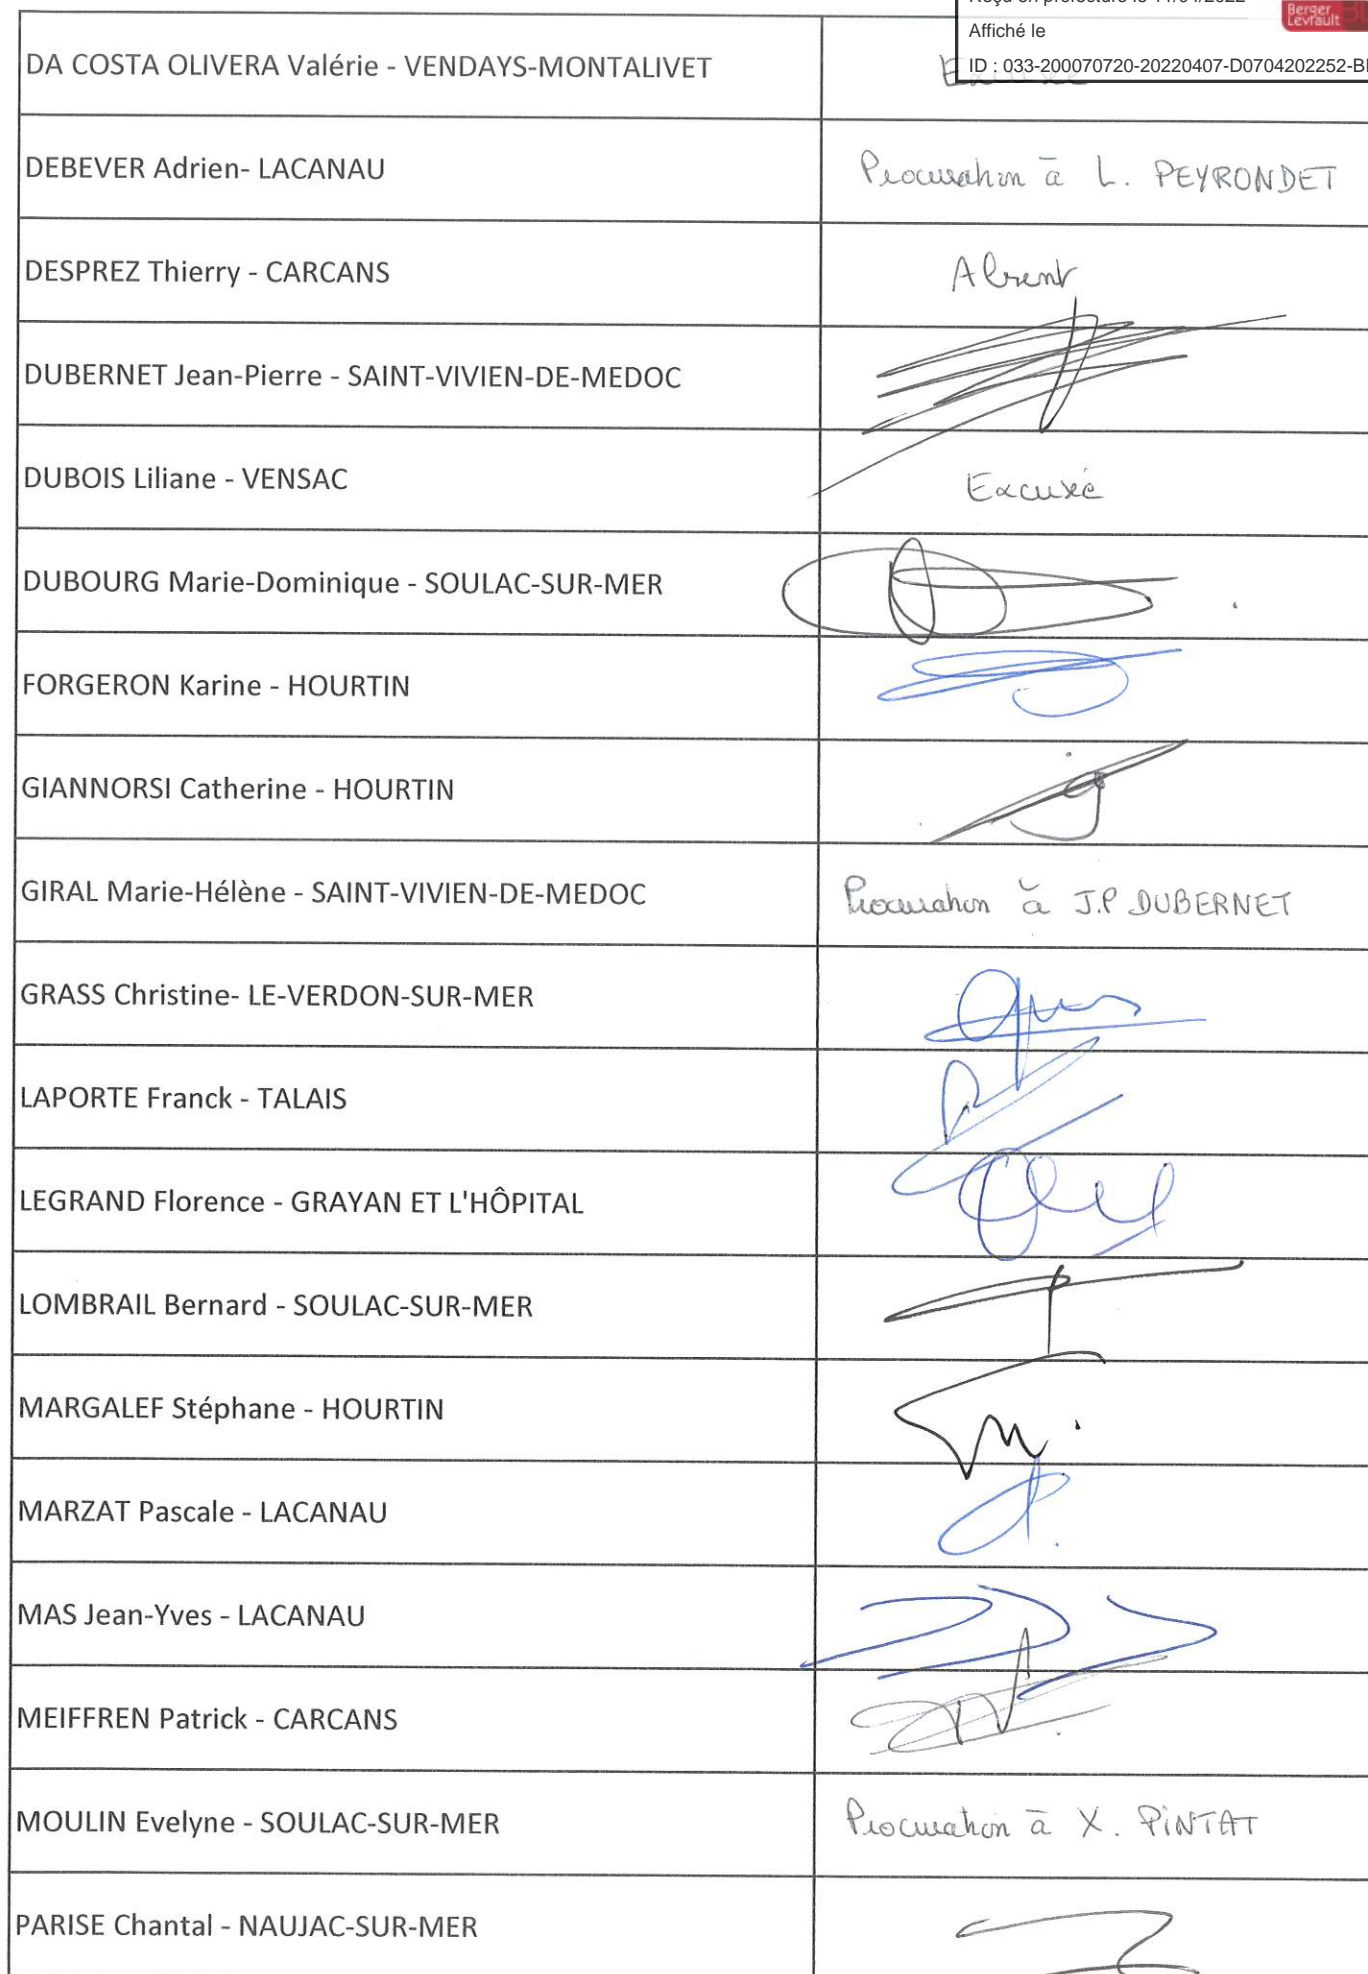 Affiché le
ID : 033-200070720-20220407-D0704202252-
Berger
Levrault
DA COSTA OLIVERA Valérie - VENDAYS-MONTALIVET
DEBEVER Adrien- LACANAU
Procuration à L. PEYRONDET
DESPREZ Thierry - CARCANS
Absent
DUBERNET Jean-Pierre - SAINT-VIVIEN-DE-MEDOC
DUBOIS Liliane - VENSAC
Excusée
DUBOURG Marie-Dominique - SOULAC-SUR-MER
FORGERON Karine - HOURTIN
GIANNORSI Catherine - HOURTIN
GIRAL Marie-Hélène - SAINT-VIVIEN-DE-MEDOC
Procuration à J.P DUBERNET
GRASS Christine- LE-VERDON-SUR-MER
LAPORTE Franck - TALAIS
LEGRAND Florence - GRAYAN ET L'HÔPITAL
LOMBRAIL Bernard - SOULAC-SUR-MER
MARGALEF Stéphane - HOURTIN
MARZAT Pascale - LACANAU
MAS Jean-Yves - LACANAU
MEIFFREN Patrick - CARCANS
MOULIN Evelyne - SOULAC-SUR-MER
Procuration à X. PINTAT
PARISE Chantal - NAUJAC-SUR-MER